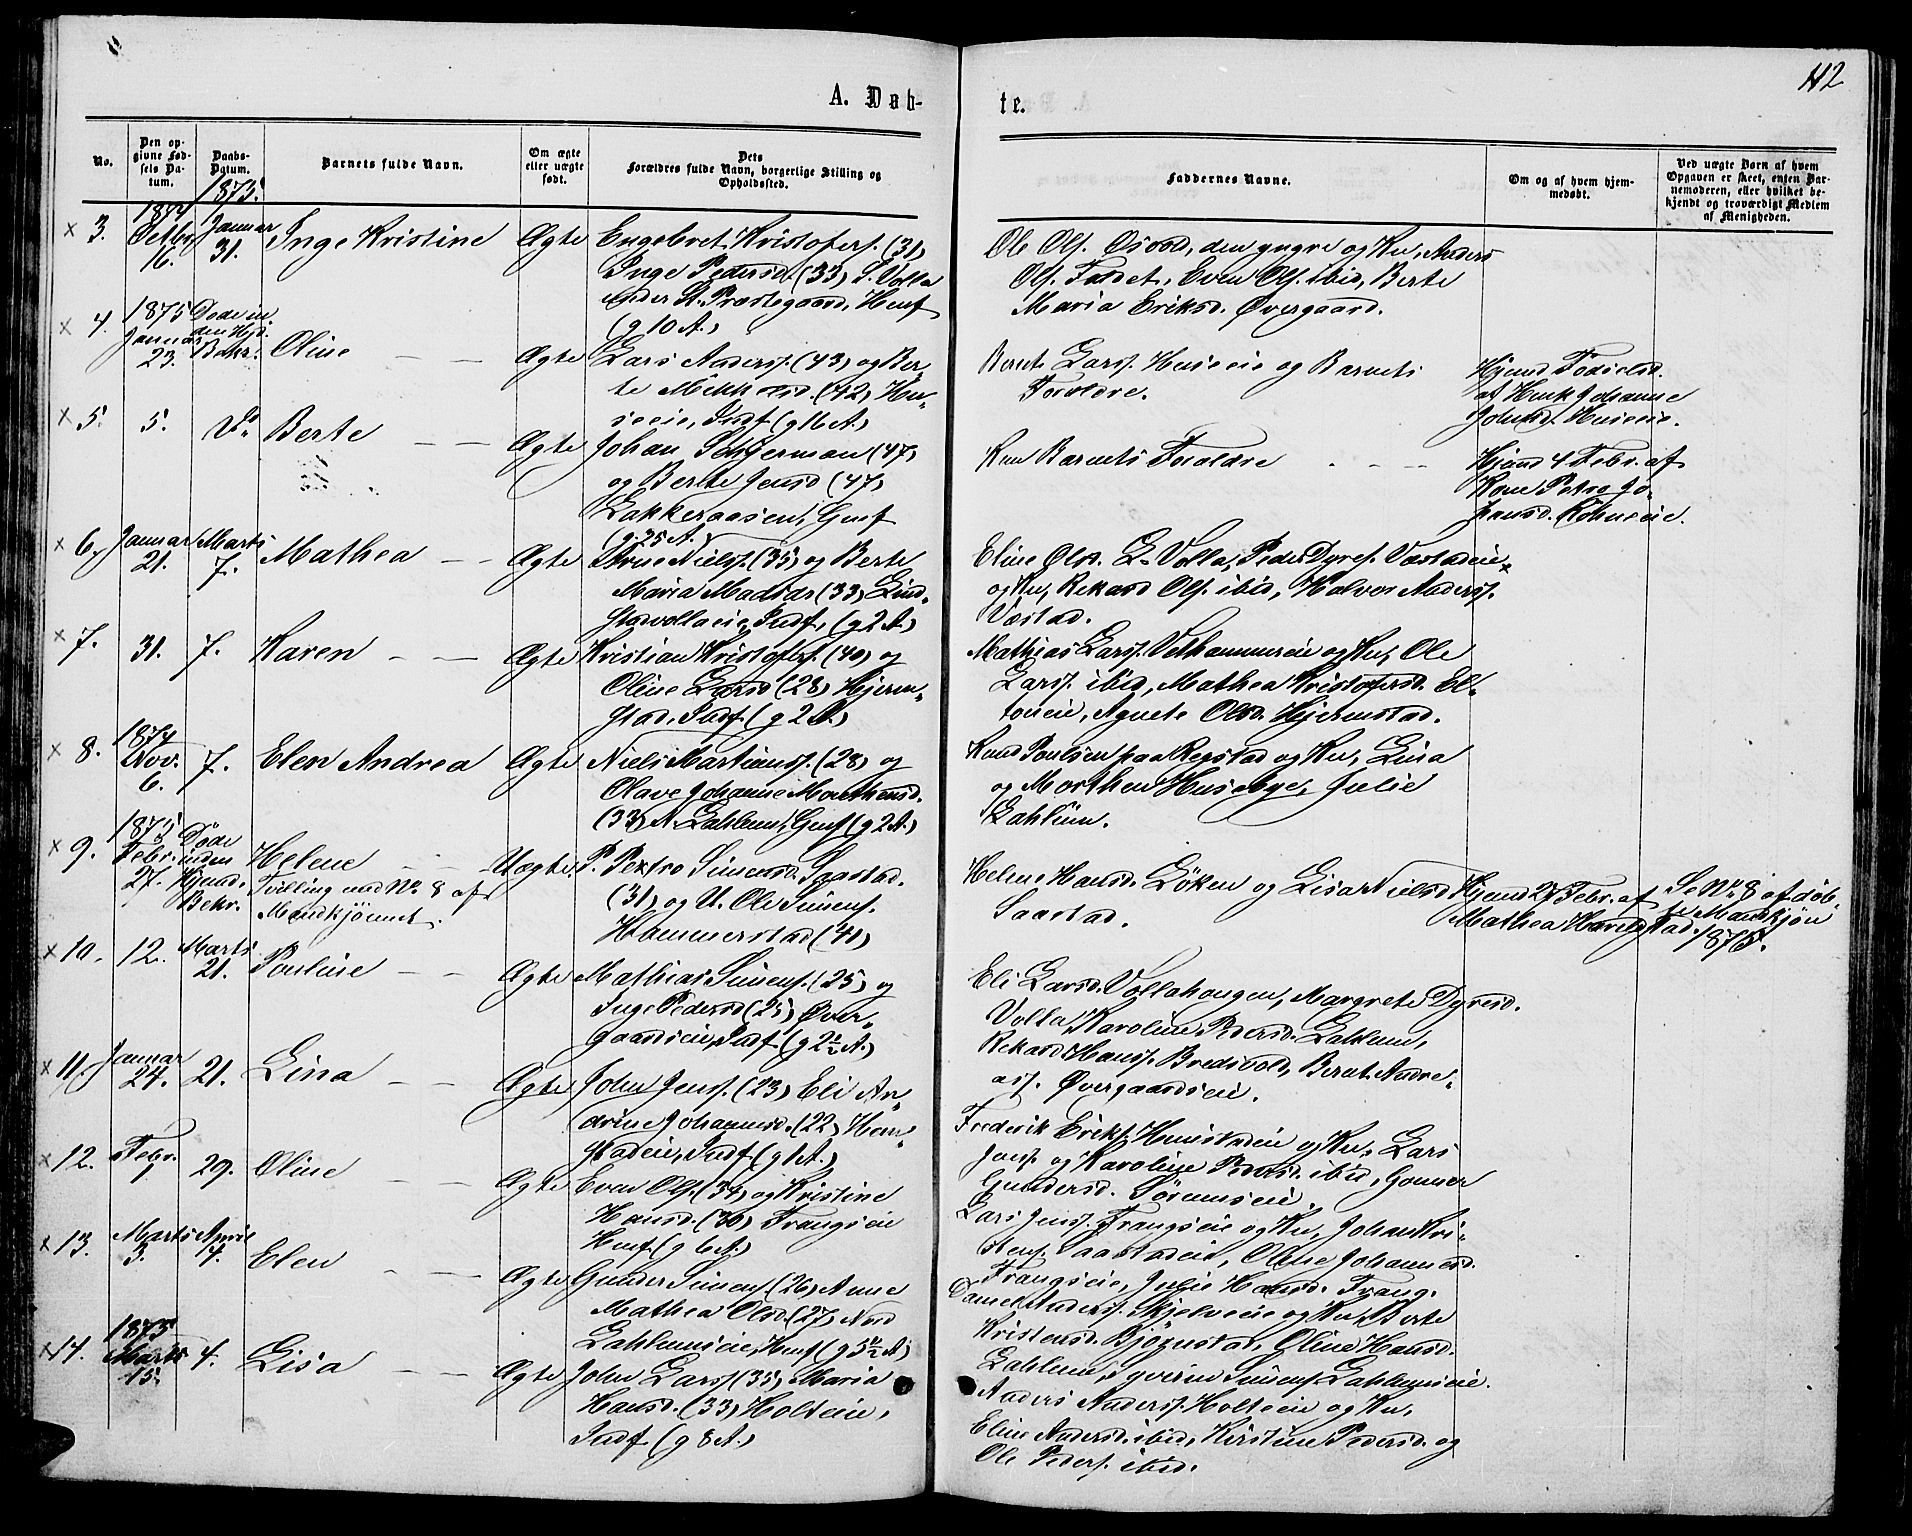 112
A. Døb-
te.
No.
Den op-
givne Fød-
sels Da-
tum.
Daabs-
Datum.
Barnets fulde Navn.
Om ægte
eller uægte
født.
Dets
Forældres fulde Navn, borgerlige Stilling og
Opholdssted.
Faddernes Navne.
Om og af hvem hjem-
medøbt.
Ved uægte Børn af hvem
Opgaven er skeet, enten Bar-
nemoderen, eller hvilket be-
kjendt og troværdigt Medlem
af Menigheden.
1875.
× 3.
1874
Octbr
16.
Januar
31.
Inge Kristine
Ægte
Engebret Kristofers. (31)
Inge Pedersd. (33) L. Volla
under St. Præstegaard, Husf
(g 10 A.)
Ole Ols. Osvod, den yngre og Ku, Anders
Ols. Faldet, Even Ols. ibid, Berte
Maria Eriksd. Øvergaard.
× 4.
1875
Januar
23.
Døde in
den Hjd.
Bekr.
Oline
Ægte
Lars Anderss. (43) og Ber-
te Mikkelsd. (42) Hu-
seeie, Indf (g 16 A.)
Bernt Larss. Huseeie og Barnets
Forældre.
Hjemd Fødselsd.
af Henk Johanne
Johnsd. Huseeie.
× 5.
5.
Do
Berte
Ægte
Johan Schjerman (47)
og Berte Jensd (47)
Lakkeraasen, Gmf
(g. 25 A.)
Kun Barnets Forældre
Hjemd 4 Febr. af
Kone Petra Jo-
hansd. Rohneeie.
× 6.
Januar
21.
Marts
7.
Mathea
Ægte
Arne Nielss. (35) og Berte
Maria Madsdr (33) Lind-
stadvollaeie, Indf, (g 2 A.)
Eline Olsd. L. Volla, Peder Dyres. Væstadeie
og Ku, Rekard Ols. ibid, Halvor Anderss.
Væstad.
× 7.
31.
7.
Karen
Ægte
Kristian Kristofers. (40) og
Oline Larsd (28) Hjerm-
stad, Indf. (g 2 A.)
Mathias Larss. Velhammereie og Ku, Ole
Larss. ibid, Mathea Kristofersd. El-
toneie, Agnete Olsd. Hjermstad.
× 8.
1874
Nov.
6.
7.
Elen Andrea
Ægte
Niels Martinuss. (28) og
Olave Johanne Morthensd.
(33) N. Lahlum, Gmf (g 2 A.)
Knud Poulsen paa Regstad og Ku, Lina
og Morthen Husebye, Julie
Lahlum.
× 9.
1875
Febr.
27.
Døde
inden
Hjemd.
Bekr.
Helene
Tvilling med No 8 af
Mandkjønnet.
Uægte
P. Petro Simensd. Saastad.
(31) og U. Ole Simens.
Hammerstad (40)
Helene Hansd. Løken og Lisa Nielsd
Saastad.
Hjemd 27 Febr. af
Mathea Haugstad.
Se No 8 af døb-
te Mandkjøn
1875.
× 10.
12.
Marts
21.
Pouline
Ægte
Mathias Simens. (25) og
Inge Pedersd (25) Øver-
gaardseie, Indf (g 2½ A.)
Eli Larsd. Vollahaugen, Margrete Dyresd.
Volla, Karoline Pedersd. Lahlum,
Rekard Hanss. Bredvold, Bernt Andre-
ass. Øvergaardseie.
× 11.
Januar
24.
21.
Lina
Ægte
John Jenss. (23) Eli An-
drine Johannesd. (22) Hem-
stadeie, Indf (g 1 A.)
Frederik Eriks. Hemstadeie og Ku, Lars
Jens. og Karoline Pedersd. ibid, Gonner
Gundersd. Sørumseie.
× 12.
Febr.
1
29.
Oline
Ægte
Even Ols. (34) og Kristine
Hansd. (30) Frangseie
Husf (g 6 A.)
Lars Jenss. Frangseie og Ku, Johan Kri-
stens. Saastadeie, Oline Johannesd.
Frangseie, Julie Hansd. Frang.
× 13.
Marts
3.
April
4.
Elen
Ægte
Gunder Simens. (26) Anne
Mathea Olsd. (27) Nord
Lahlumseie, Husf (g 3½ A)
Daniel Anderss. Skjelveeie og Ku, Berte
Kristensd. Bjørnstad, Oline Hansd.
Lahlum, Syverin Simens. Lahlumseie.
× 14.
1875
Marts
15.
4.
Lisa
Ægte
John Larss (35) Maria
Hansd. (33) Holteeie,
Indf (g 8 A.)
Anders Anderss. Holteeie og Ku,
Eline Andersd. ibid, Kirstine Pedersd. og
Ole Peders. ibid.